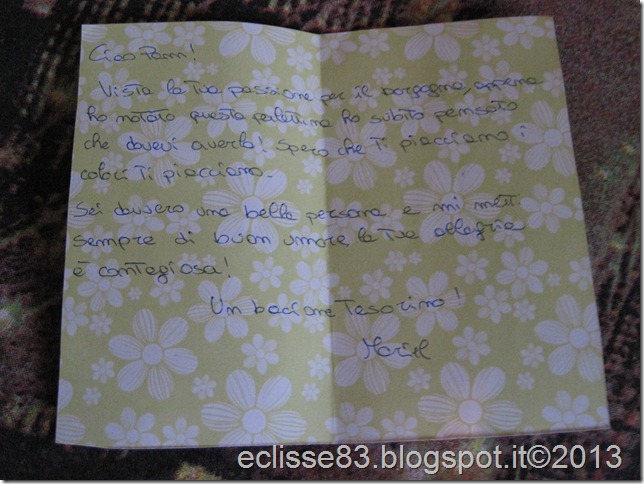 Ciao Pamm!
Vista la Tua passione per il borgogna, appena
ho notato questa palettina ho subito pensato
che dovevi averla! Spero che Ti piacciamo i
colori Ti piacciano.
Sei davvero una bella persona e mi metti
sempre di buon umore, la Tua allegria
è contagiosa!
Un bacione Tesorino!
eclisse83.blogspot.it©2013